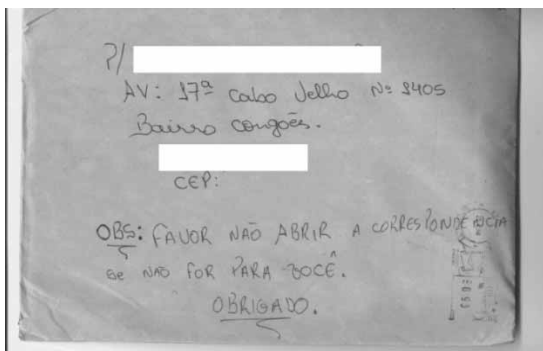 P/
AV: 17ª Cabo Velho Nº 1405
Bairro Congoês.
CEP:
OBS: FAVOR NÃO ABRIR A CORRESPONDENCIA
SE NÃO FOR PARA VOCÊ.
OBRIGADO.